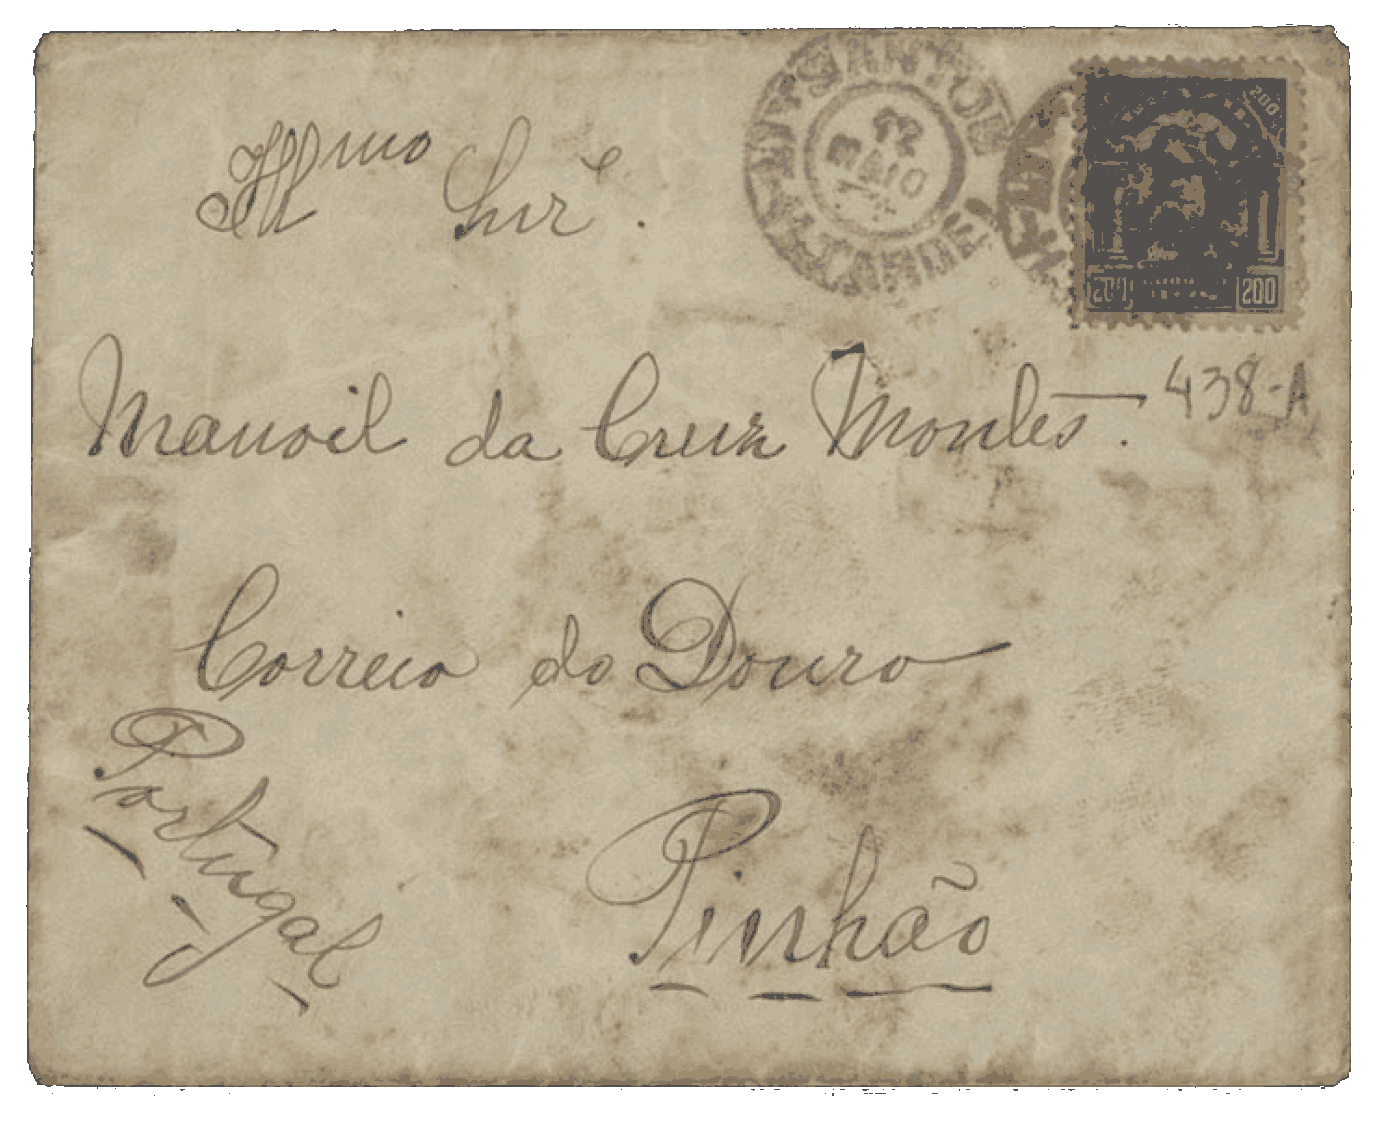 Illmo Snr.
12
MAIO
200
200 200
438-A
Manoil da Cruz Montes.
Correio do Douro
Portugal
Pinhão